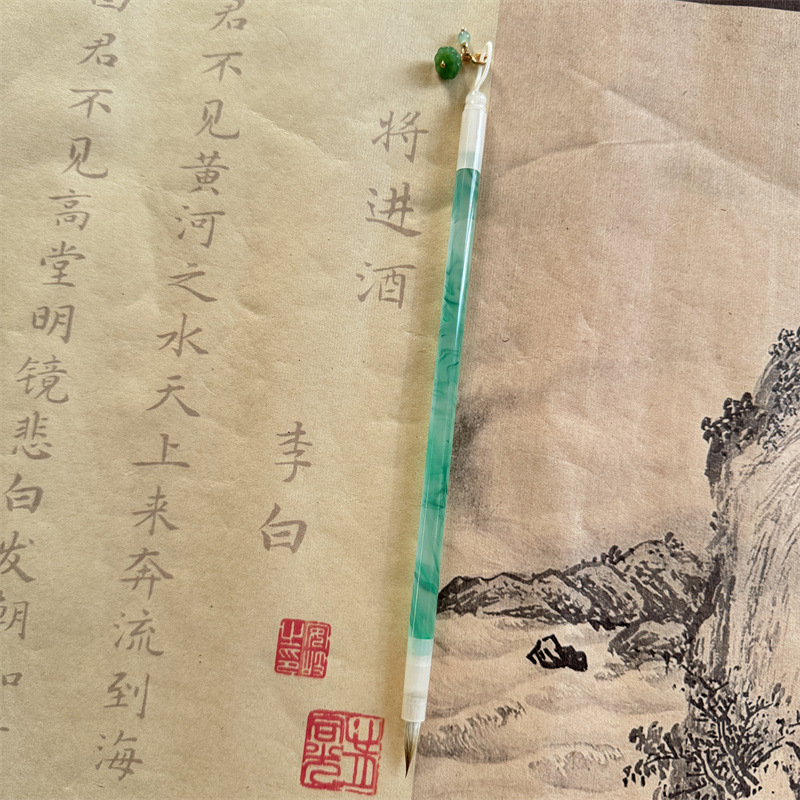 将进酒
李白
君不见黄河之水天上来奔流到海
回君不见高堂明镜悲白发朝